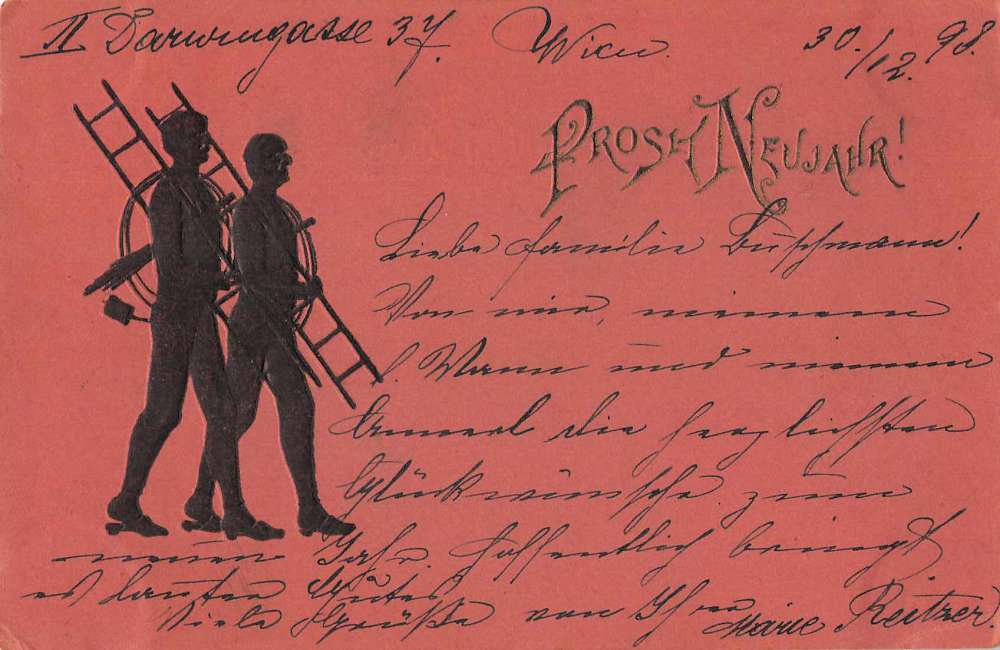 II Darwingasse 37. Wien. 30./12. 98.
Prosit Neujahr!
Liebe Familie Buschmann!
Von mir, meinem
l. Mann und meinem
die herzlichsten
Glückwünsche zum
neuen Jahr. Hoffentlich bringt
es lauter Gutes
Viele Grüße von Ihrer Marie Reitzer.